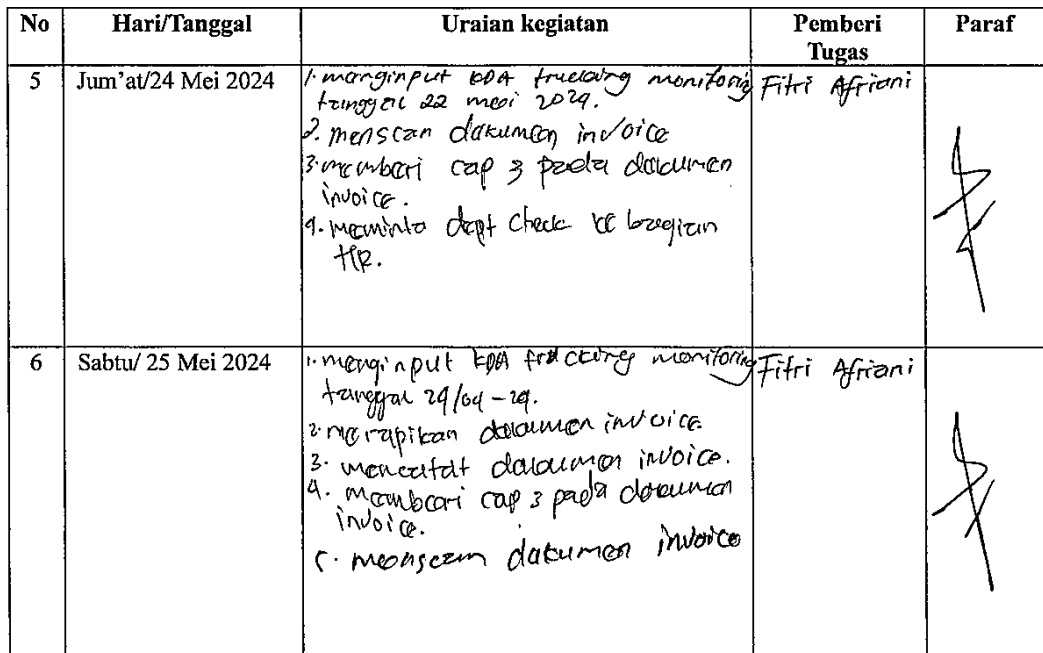 No Hari/Tanggal Uraian kegiatan Pemberi Tugas Paraf
5 Jum'at/24 Mei 2024 1. menginput trucking monitoring Fitri Afriani
tanggal 22 mei 2024.
2. menscan dokumen invoice
3. memberi cap 3 pada dokumen
invoice.
4. meminta dept check ke bagian
HR.
6 Sabtu/ 25 Mei 2024 1. menginput tracking monitoring Fitri Afriani
tanggal
2. merapikan dokumen invoice
3. mencatat dokumen invoice.
4. memberi cap 3 pada dokumen
invoice.
5. menscan dokumen invoice